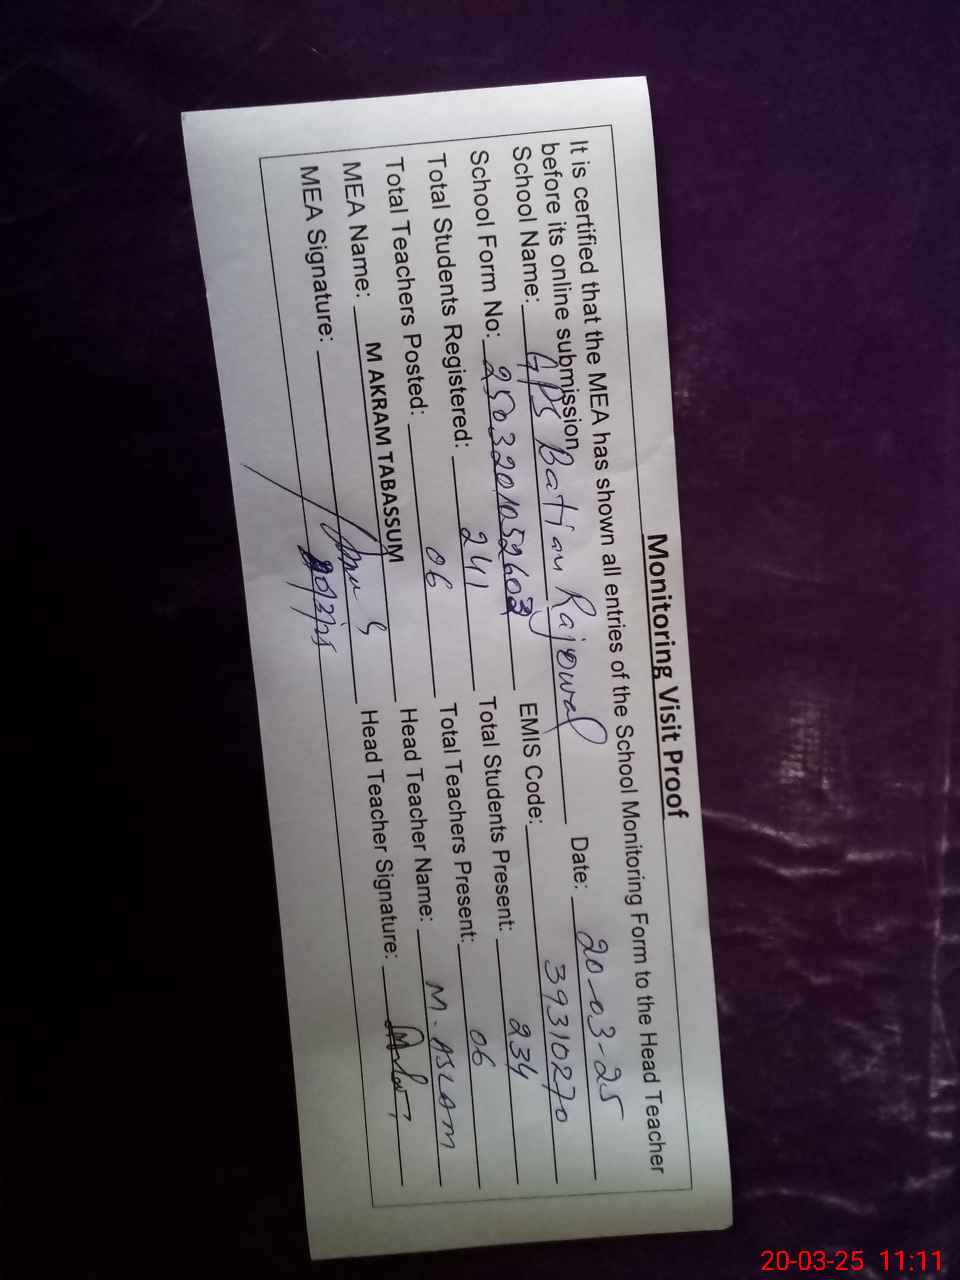 Monitoring Visit Proof
It is certified that the MEA has shown all entries of the School Monitoring Form to the Head Teacher
before its online submission.
School Name: GPS Batian Rajowal Date: 20-03-25
School Form No: 2503201052603 EMIS Code: 39310270
Total Students Registered: 241 Total Students Present: 234
Total Teachers Posted: 06 Total Teachers Present: 06
MEA Name: M AKRAM TABASSUM Head Teacher Name: M. ASLAM
MEA Signature: Head Teacher Signature:
20-03-25 11:11